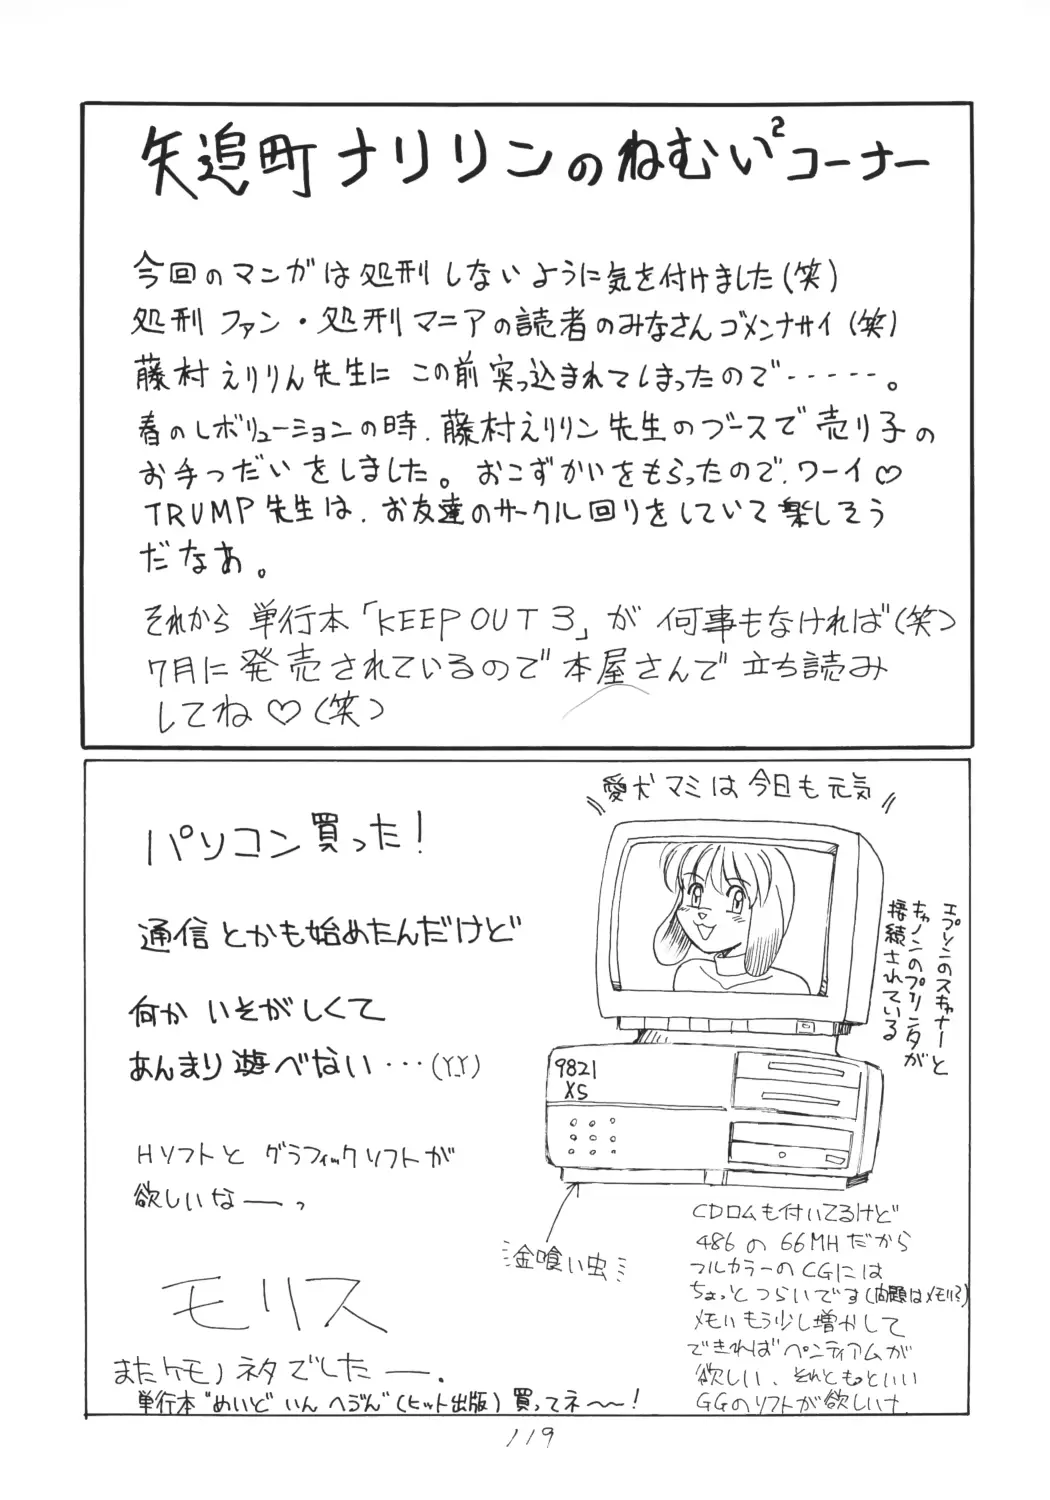 矢追町ナリリンのねむい²コーナー
今回のマンガは処刑しないように気を付けました(笑)
処刑ファン・処刑マニアの読者のみなさんゴメンナサイ(笑)
藤村えりりん先生に この前突っ込まれてしまったので・・・・・。
春のレボリューションの時、藤村えりリン先生のブースで売り子の
お手つだいをしました。おこずかいをもらったので、ワーイ♡
TRUMP先生は、お友達のサークル回りをしていて楽しそう
だなあ。
それから 単行本「KEEP OUT 3」が 何事もなければ(笑)
7月に発売されているので本屋さんで立ち読み
してね♡(笑)
パソコン買った!
通信とかも始めたんだけど
何か いそがしくて
あんまり遊べない・・・(Y.Y)
Hソフトと グラフィックソフトが
欲しいなーっ
モリス
またケモノネタでした―.
単行本"めいど いん へぶん"(ヒット出版)買ってネ〜〜!
愛犬マミは今日も元気
エプソンのスキャナーと
キャノンのプリンタが
接続されている
9821
XS
金喰い虫
CDロムも付いてるけど
486の66MHだから
フルカラーのCGには
ちょっとつらいです(問題はメモリ?)
メモリもう少し増かして
できればペンティアムが
欲しい、それともといい
GGのソフトが欲しいナ
119